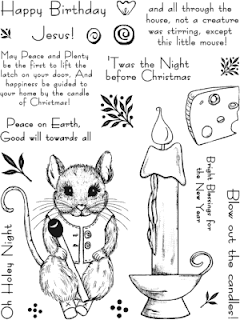 Happy Birthday
Jesus!
and all through the
house, not a creature
was stirring, except
this little mouse!
May Peace and Plenty
be the first to lift the
latch on your door. And
happiness be guided to
your home by the candle
of Christmas!
'Twas the Night
before Christmas
Peace on Earth,
Good will towards all
Bright Blessings for
the New Year
Blow out the candles!
Oh Holey Night